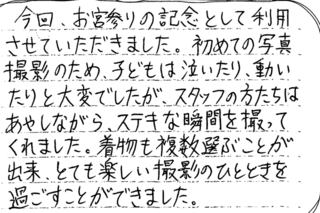 今回、お宮参りの記念として利用
させていただきました。初めての写真
撮影のため、子どもは泣いたり、動い
たりと大変でしたが、スタッフの方たちは
あやしながら、ステキな瞬間を撮って
くれました。着物も複数選ぶことが
出来、とても楽しい撮影のひとときを
過ごすことができました。